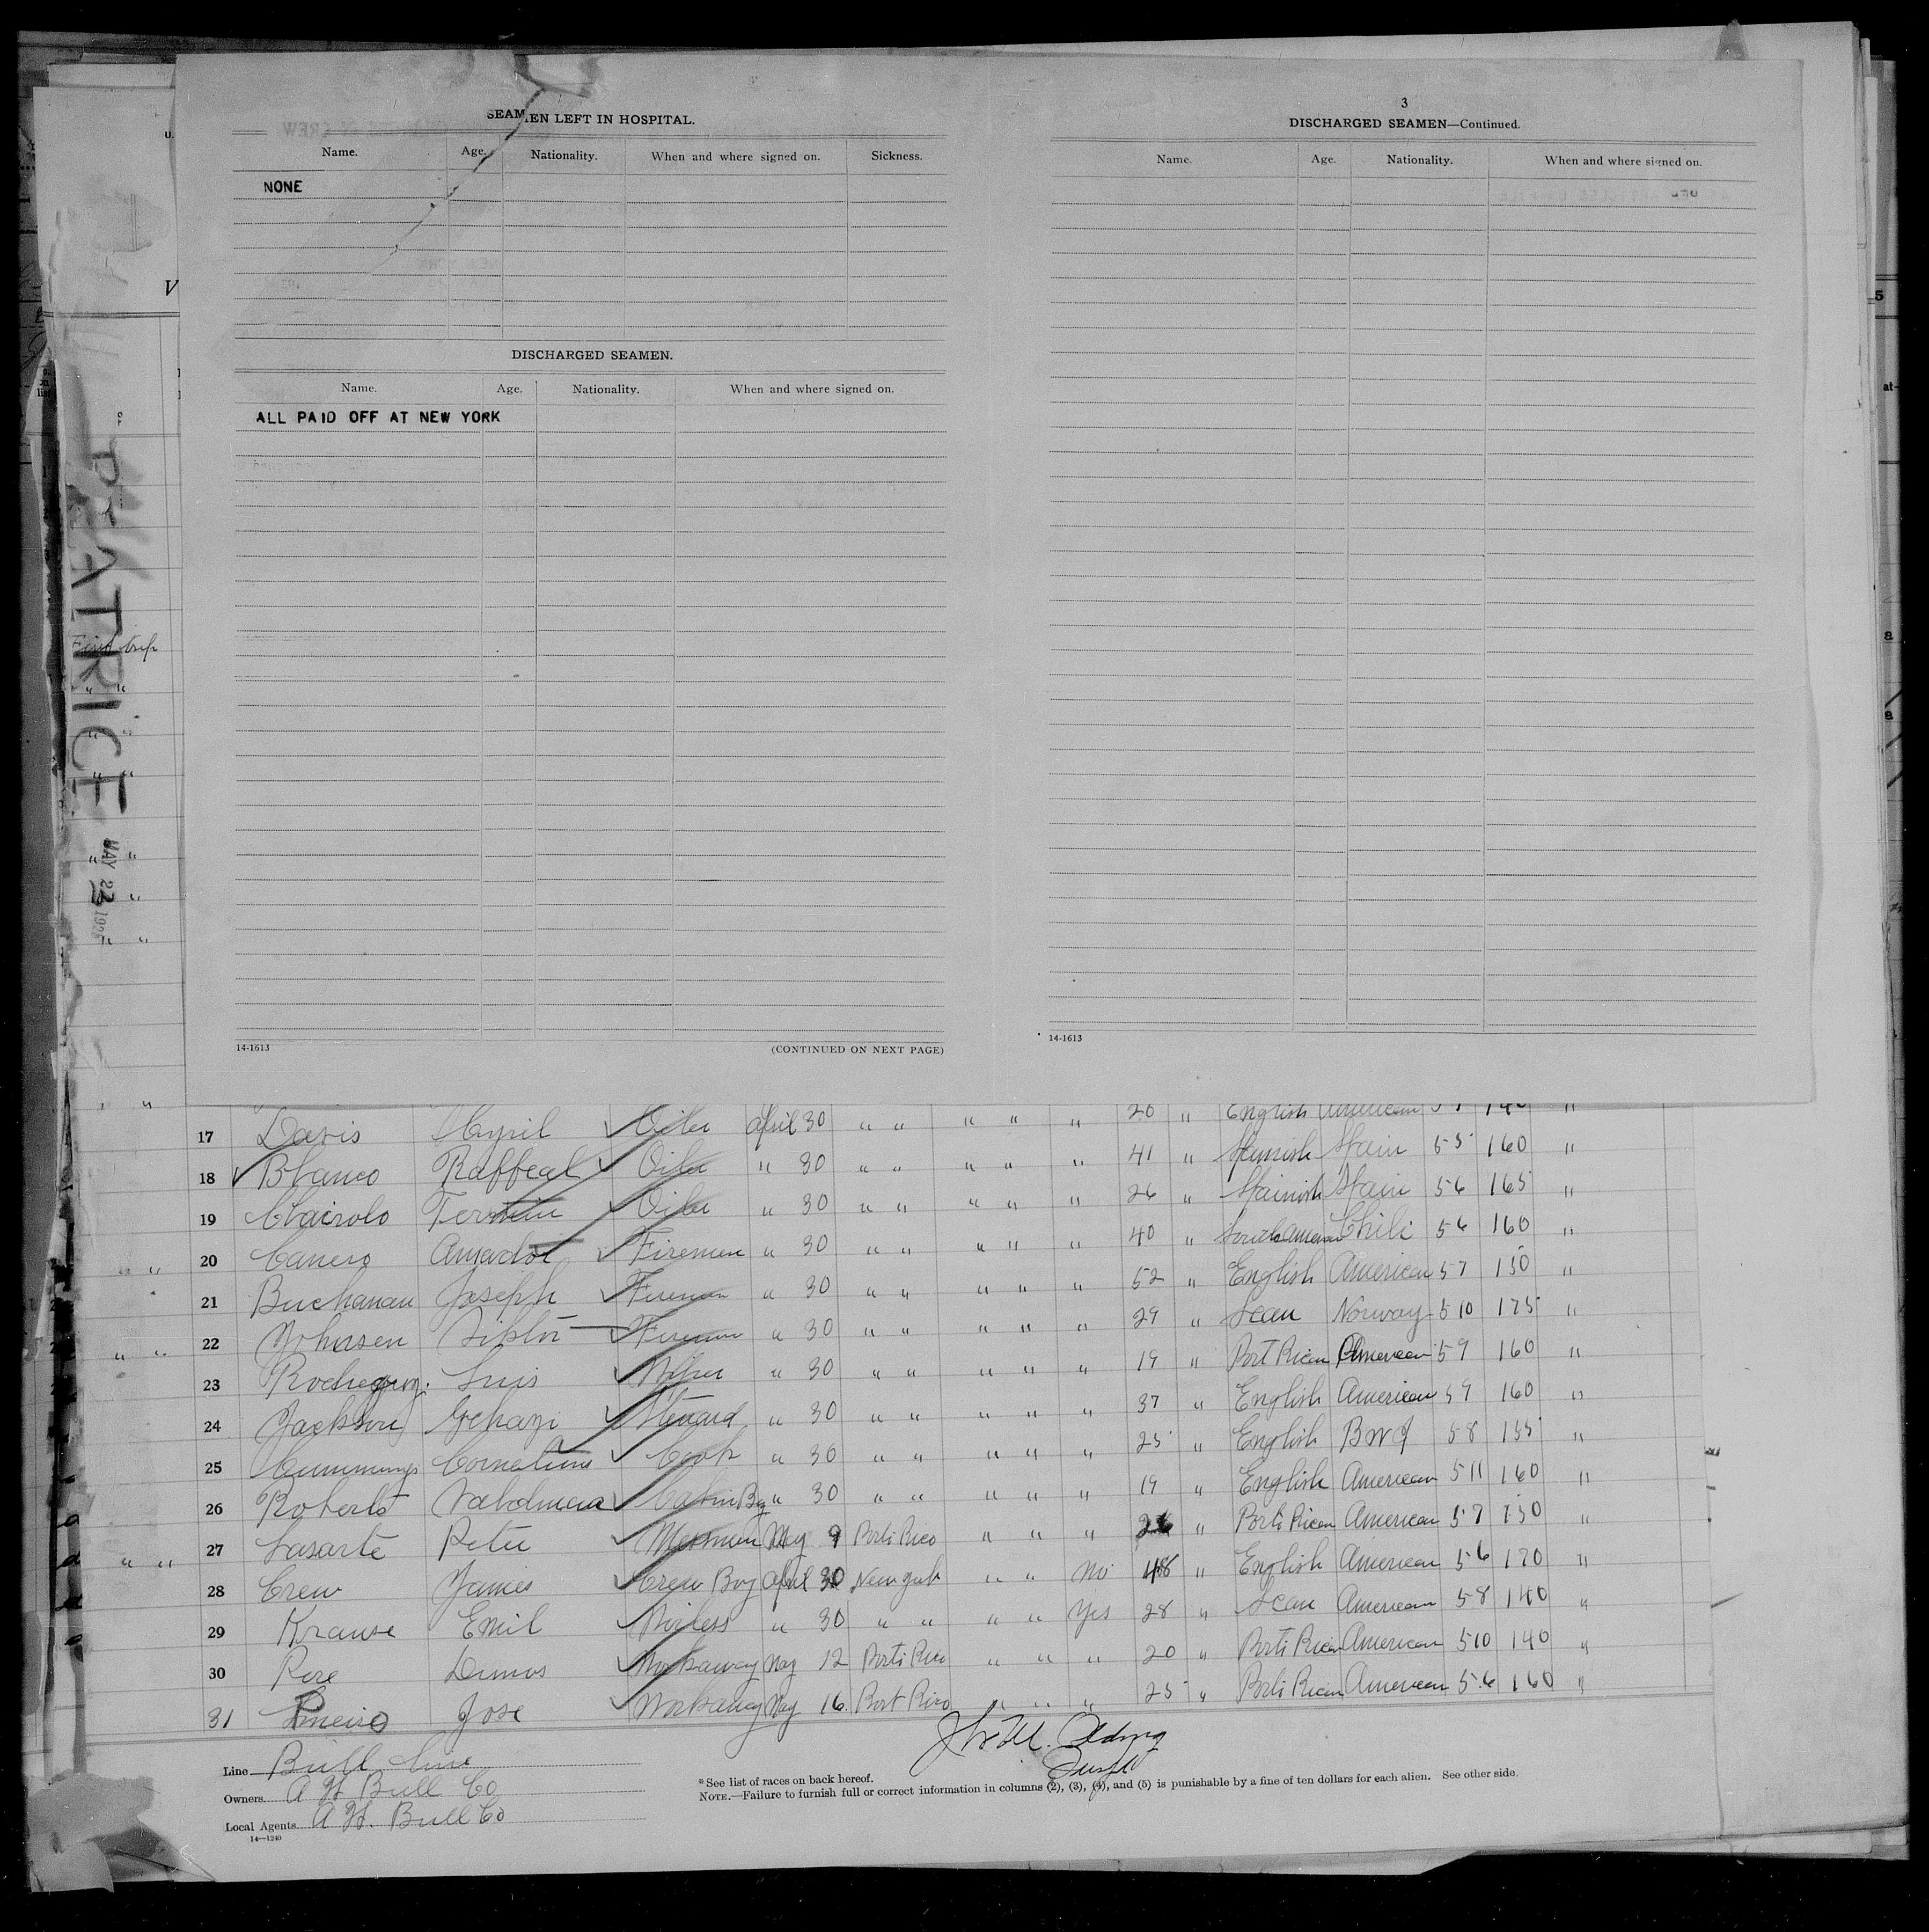 3
SEAMEN LEFT IN HOSPITAL.
Name. Age. Nationality. When and where signed on. Sickness.
NONE
DISCHARGED SEAMEN.
Name. Age. Nationality. When and where signed on.
ALL PAID OFF AT NEW YORK
14-1613 (CONTINUED ON NEXT PAGE)
DISCHARGED SEAMEN—Continued.
Name. Age. Nationality. When and where signed on.
14-1613
BEATRICE
MAY 22
First trip
17 Davis Cyril Oiler April 30 " " " " " 20 " English American
18 Blanco Raffeal Oiler " 30 " " " " " 41 " Spanish Spain 5 5 160 "
19 Fermin Oiler " 30 " " " " " 26 " Spainish Spain 5 6 165 "
20 Canero Amador Firemen " 30 " " " " " 40 " South American Chili 5 6 160 "
21 Buchanan Joseph Firemen " 30 " " " " " 52 " English American 5 7 150 "
22 Johnsen Firemen " 30 " " " " " 29 " Scan Norway 5 10 175 "
23 Luis Wiper " 30 " " " " " 19 " Port Rican American 5 9 160 "
24 Jackson Gehazi Steward " 30 " " " " " 37 " English American 5 9 160 "
25 Cummings Cornelius Cook " 30 " " " " " 25 " English B W I 5 8 155 "
26 Roberts Cabin Boy " 30 " " " " " 19 " English American 5 11 160 "
27 Lasarte Peter Messman May 9 Porto Rico " " " 26 " Porto Rican American 5 7 150 "
28 Crew James Crew Boy April 30 New York " " No 48 " English American 5 6 170 "
29 Krause Emil Wireless " 30 " " " " Yes 28 " Scan American 5 8 140 "
30 Workaway May 12 Porto Rico " " " 20 " Porto Rican American 5 10 140 "
31 Jose Workaway May 16. Port Rico " " " 25 " Porto Rican American 5.6 160 "
Line Bull Line
Owners A H Bull Co
Local Agents A H. Bull Co
14—1240
* See list of races on back hereof.
NOTE.—Failure to furnish full or correct information in columns (2), (3), (4), and (5) is punishable by a fine of ten dollars for each alien. See other side.